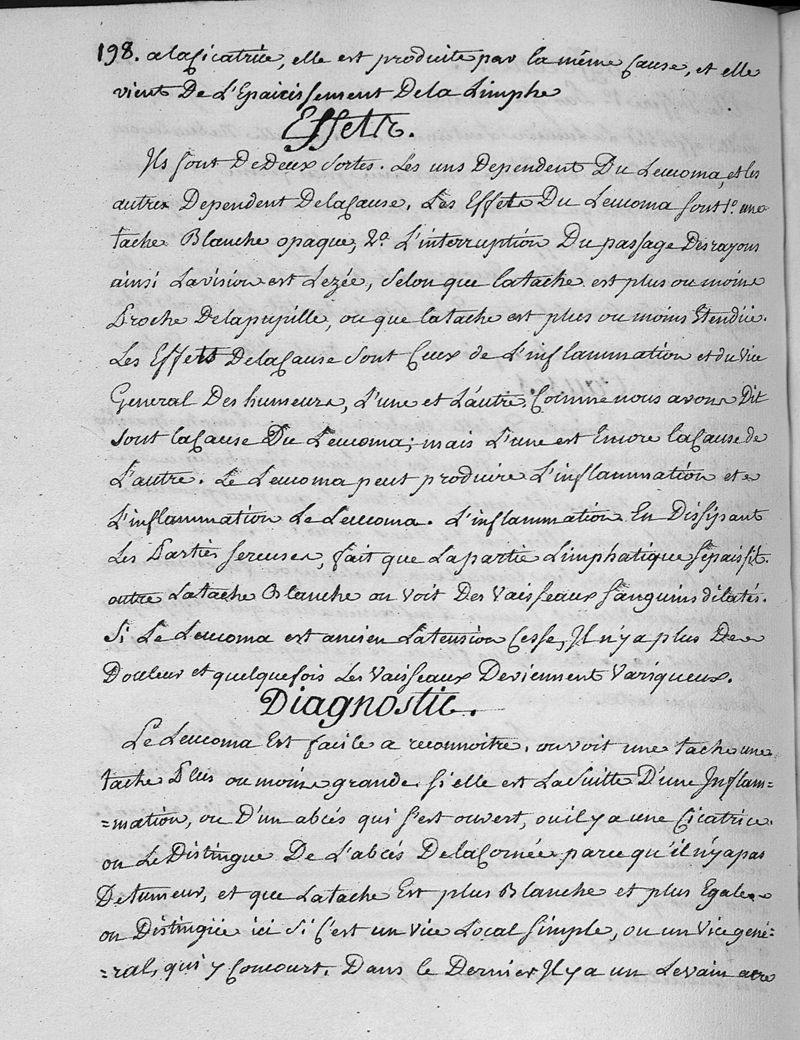 198. a la Cicatrice, elle est produite par la même Cause, et elle
vient De L'Epaicissement De la Limphe
Effets.
Ils sont De Deux sortes. Les uns Dependent Du Leucoma, et les
autres Dependent De la Cause. Les Effets Du Leucoma sont 1.º une
tache Blanche opaque, 2.º L'interruption Du passage Des rayons
ainsi La vision est Lezée, selon que la tache est plus ou moins
Proche De la pupille, ou que la tache est plus ou moins Etendüe.
Les Effets De la Cause sont Ceux de L'inflammation et du vice
General Des humeurs, L'une et L'autre, Comme nous avons Dit
sont la Cause Du Leucoma; mais L'une est Encore la Cause de
L'autre. Le Leucoma peut produire L'inflammation et
L'inflammation Le Leucoma. L'inflammation En Dissipant
Les Parties sereuses, fait que La partie Limphatique s'épaissit.
outre La tache Blanche on voit Des Vaisseaux sanguins dilatés.
Si Le Leucoma est ancien La tension Cesse, Il n'y a plus De
Douleur et quelquefois Les Vaisseaux Deviennent Variqueux.
Diagnostic.
Le Leucoma Est facile a reconnoitre. on voit une tache une
tache Plus ou moins grande. si elle est La Suitte D'une Inflam=
=mation, ou D'un abcés qui s'est ouvert, ou il y a une Cicatrice.
on Le Distingue De L'abcés De la Cornée parce qu'il n'y a pas
De tumeur, et que La tache Est plus Blanche et plus Egale
on Distingüe ici Si C'est un vice Local simple, ou un vice géné=
=ral, qui y Concourt. Dans le Dernier Il y a un Levain acre